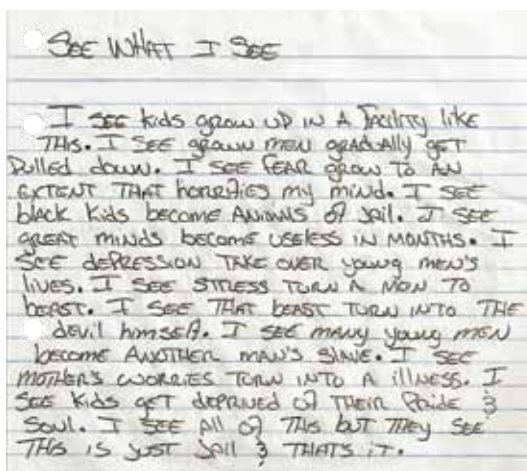 SEE WHAT I SEE
I SEE kids grow up IN A FACility like
THis. I SEE grown men gradually get
Pulled down. I SEE FEAR grow TO AN
EXTENT THAT horrifies my mind. I SEE
black Kids become ANiMALS of Jail. I SEE
GREAT minds become useless IN MONTHS. I
SEE dEPRESSION TAKE OVER young MEN'S
lives. I SEE STRESS TURN A MAN TO
bEAST. I SEE THAT bEAST TURN INTO THE
devil himself. I SEE many young MEN
become ANOTHER MAN'S SlAVE. I SEE
MOTHER'S WORRIES TURN INTO A illNESS. I
SEE Kids GET dEPRiVED of THEiR PRide &
Soul. I SEE All of THis but THEY SEE
THis is JUST JAil & THAT'S iT.